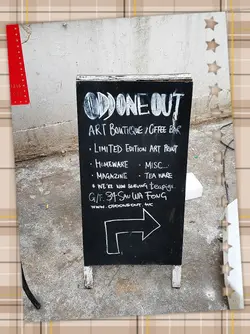 ODD ONE OUT
ART BOUTIQUE / COFFEE BAR
· LIMITED EDITION ART PRINT
· HOMEWARE · MISC...
· MAGAZINE · TEA WARE
* WE'RE NOW SERVING teapigs.
G/F. 34 SAU WA FONG
WWW.ODDONEOUT.HK